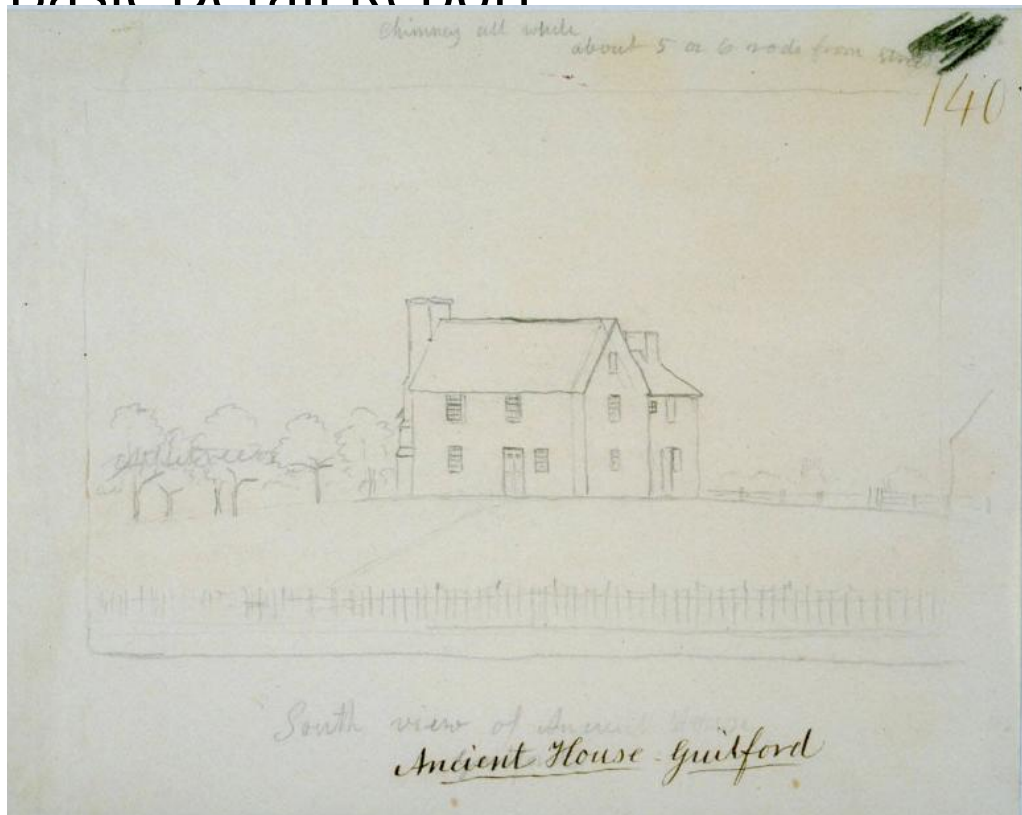 Basic Detail Report
Chimney all white
about 5 or 6 rods from street
140
South view of Ancient House
Ancient House - Guilford